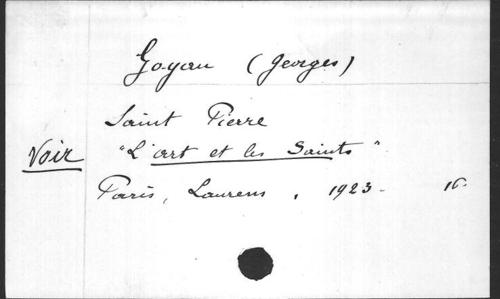 Goyau (Georges)
Saint Pierre
Voir "L'art et les Saints"
Paris, Laurens, 1923- 16.